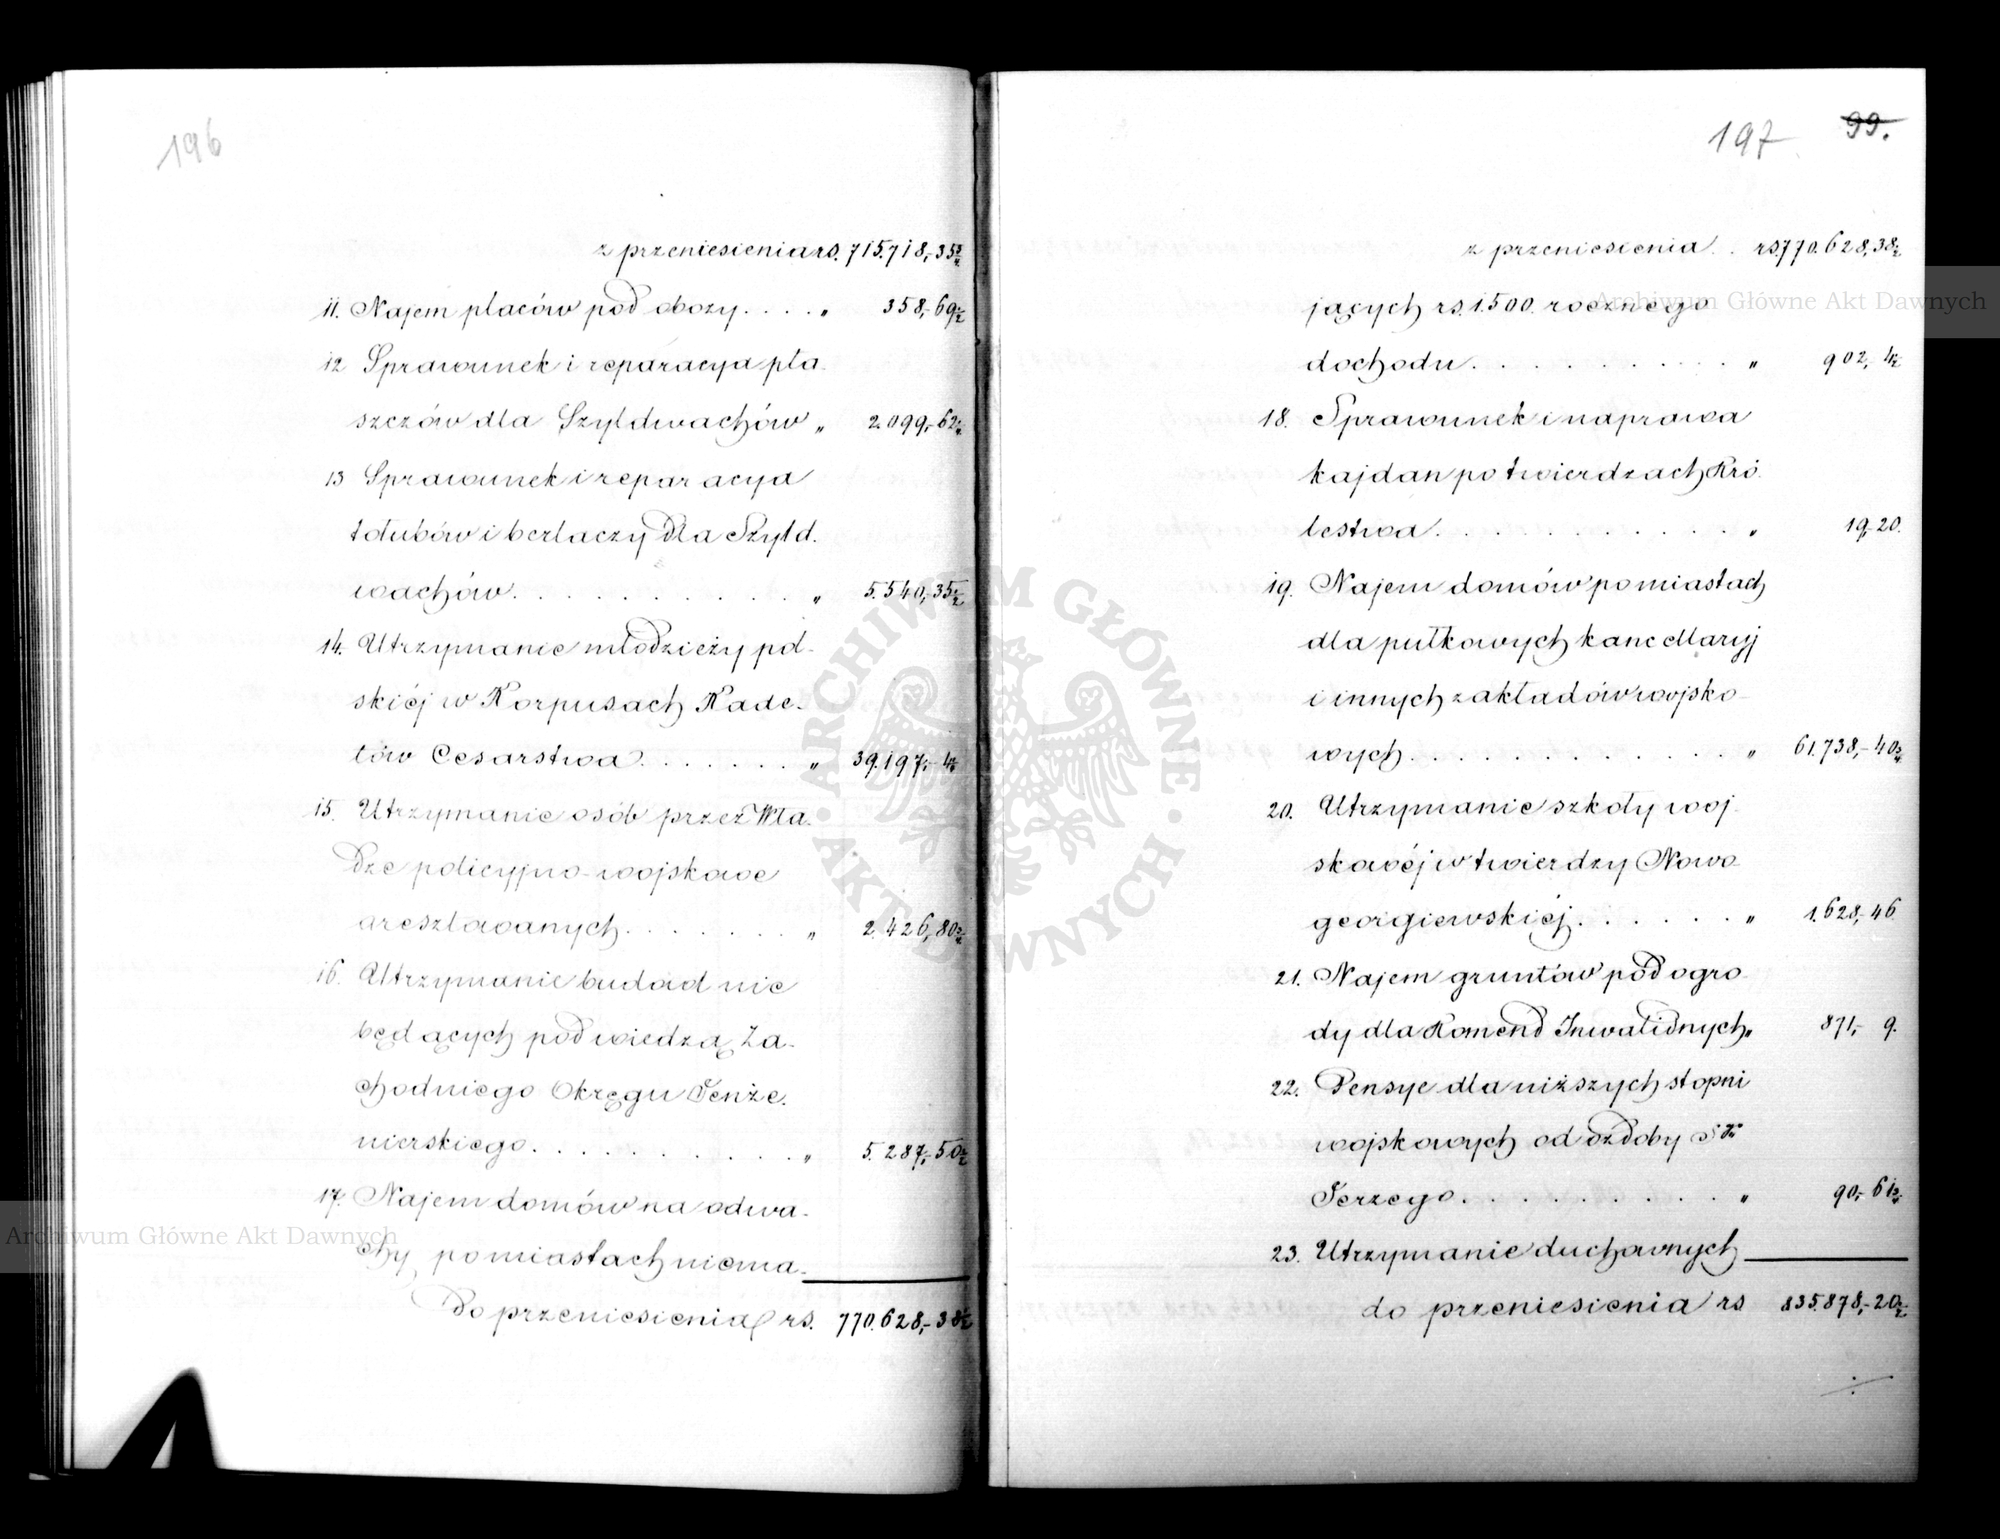 196
z przeniesienia rs. 715.718,-35¾
11. Najem placów pod obozy . . . . „ 358,-69½
12 Sprawunek i reparacya pła-
szczów dla Szyldwachów „ 2.099,-62
13 Sprawunek i reparacya
tołubów i berlaczy dla Szyld-
wachów . . . . . . . . . . . „ 5.540,-35½
14. Utrzymanie młodzieży pol-
skiéj w Korpusach Kade-
tów Cesarstwa . . . . . . . „ 39.197,-4
15. Utrzymanie osób przez Wła-
dze policyjno-wojskowe
aresztowanych . . . . . . . „ 2.426,80
16. Utrzymanie budowl nie
będących pod wiedzą Za-
chodniego Okręgu Jenże-
nierskiego . . . . . . . . . . . „ 5.287,-50½
17. Najem domów na odwa-
chy, po miastach niema-
Do przeniesienia rs. 770.628,-38½
197 99.
z przeniesienia . . rs. 770.628,38½
jących rs. 1.500. rocznego
dochodu . . . . . . . . . . . „ 902,-4½
18. Sprawunek i naprawa
kajdan po twierdzach Kró-
lestwa . . . . . . . . . . . . „ 19,-20.
19. Najem domów po miastach
dla pułkowych kancellaryj
i innych zakładów wojsko-
wych . . . . . . . . . . . . . „ 61.738,-40¾
20. Utrzymanie szkoły woj-
skowéj w twierdzy Nowo-
georgiewskiéj . . . . . . . „ 1.628,-46.
21. Najem gruntów pod ogro-
dy dla Komend Inwalidnych „ 871,- 9.
22. Pensye dla niższych stopni
wojskowych od ozdoby Sgo
Jerzego . . . . . . . . . . . „ 90,-61
23. Utrzymanie duchownych
do przeniesienia rs 835.878,-20½
Archiwum Główne Akt Dawnych
Archiwum Główne Akt Dawnych
ARCHIWUM GŁÓWNE
AKT DAWNYCH